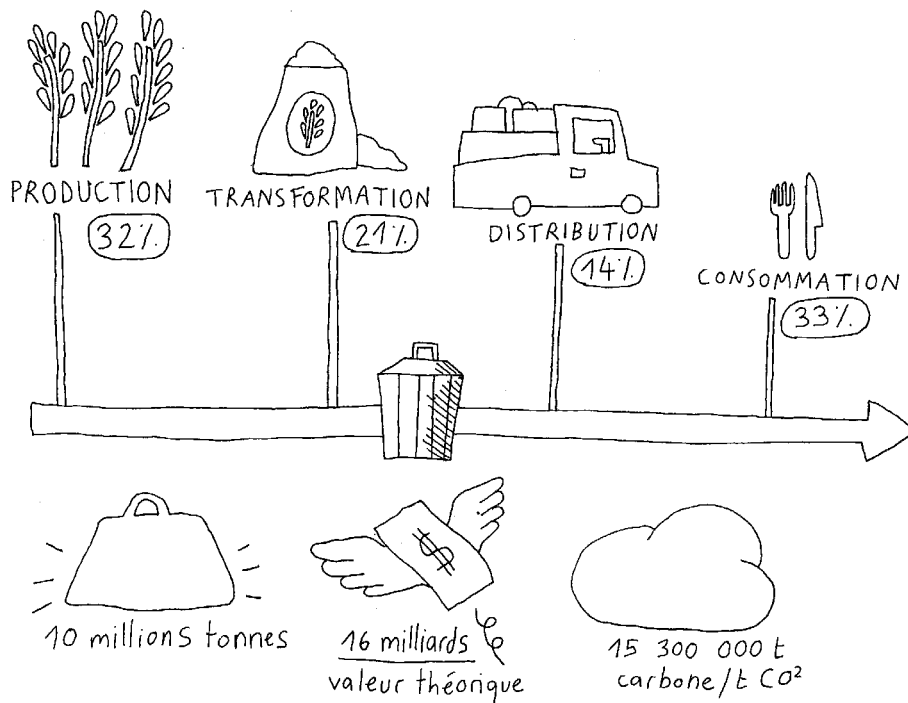 PRODUCTION
32%
TRANSFORMATION
21%
DISTRIBUTION
14%
CONSOMMATION
33%
10 millions tonnes
$
16 milliards
valeur théorique
15 300 000 t
carbone/t CO²